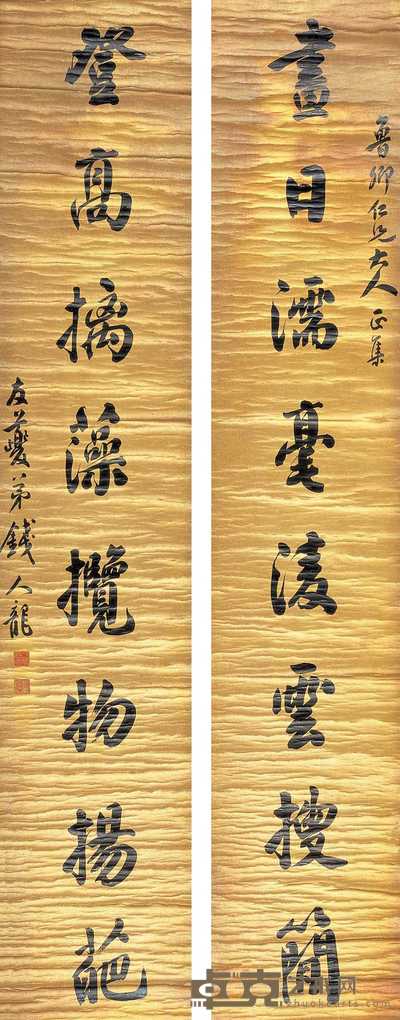 魯卿仁兄大人正集
畫日濡毫淩雲搜簡
登高摛藻攬物揚葩
友夔弟錢人龍